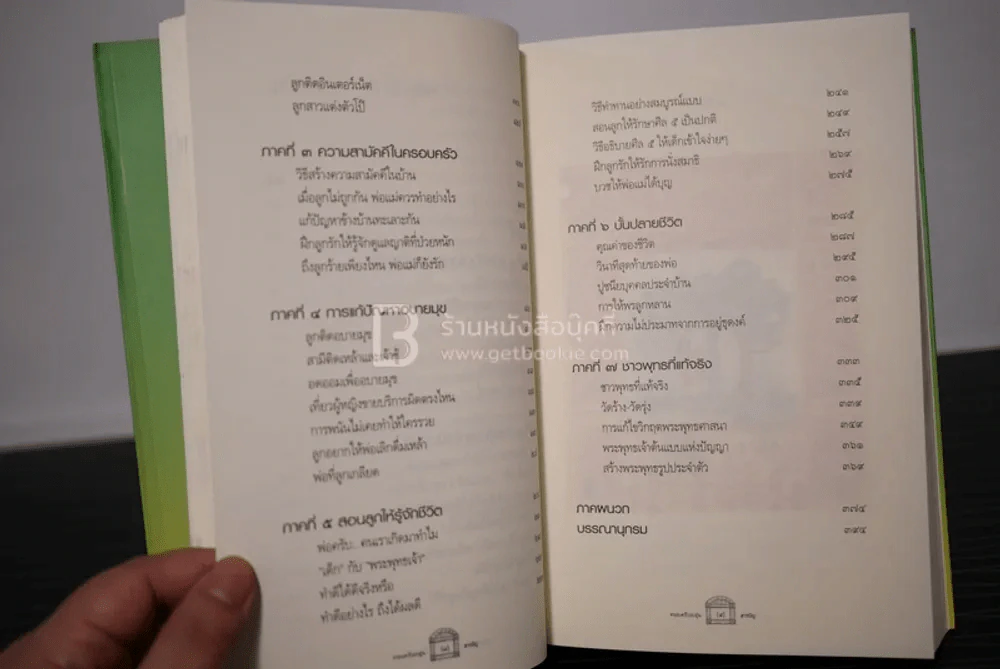 ลูกติดอินเตอร์เน็ต
ลูกสาวแต่งตัวโป๊
ภาคที่ ๓ ความสามัคคีในครอบครัว
วิธีสร้างความสามัคคีในบ้าน
เมื่อลูกไม่ถูกกัน พ่อแม่ควรทำอย่างไร
แก้ปัญหาข้างบ้านทะเลาะกัน
ฝึกลูกรักให้รู้จักดูแลญาติที่ป่วยหนัก
ถึงลูกร้ายเพียงไหน พ่อแม่ก็ยังรัก
ภาคที่ ๔ การแก้ปัญหาอบายมุข
ลูกติดอบายมุข
สามีติดเหล้าและเจ้าชู้
อดออมเพื่ออบายมุข
เที่ยวผู้หญิงขายบริการผิดตรงไหน
การพนันไม่เคยทำให้ใครรวย
ลูกอยากให้พ่อเลิกดื่มเหล้า
พ่อที่ลูกเกลียด
ภาคที่ ๕ สอนลูกให้รู้จักชีวิต
พ่อครับ.. คนเราเกิดมาทำไม
"เด็ก" กับ "พระพุทธเจ้า"
ทำดีได้ดีจริงหรือ
ทำดีอย่างไร ถึงได้ผลดี
วิธีทำทานอย่างสมบูรณ์แบบ ๒๔๑
สอนลูกให้รักษาศีล ๕ เป็นปกติ ๒๔๙
วิธีอธิบายศีล ๕ ให้เด็กเข้าใจง่ายๆ ๒๕๗
ฝึกลูกรักให้รักการนั่งสมาธิ ๒๖๙
บวชให้พ่อแม่ได้บุญ ๒๗๕
ภาคที่ ๖ บั้นปลายชีวิต ๒๘๕
คุณค่าของชีวิต ๒๘๗
วินาทีสุดท้ายของพ่อ ๒๙๕
ปูชนียบุคคลประจำบ้าน ๓๐๑
การให้พรลูกหลาน ๓๐๙
ฝึกความไม่ประมาทจากการอยู่ธุดงค์ ๓๒๕
ภาคที่ ๗ ชาวพุทธที่แท้จริง ๓๓๓
ชาวพุทธที่แท้จริง ๓๓๕
วัดร้าง-วัดรุ่ง ๓๓๙
การแก้ไขวิกฤตพระพุทธศาสนา ๓๔๙
พระพุทธเจ้าต้นแบบแห่งปัญญา ๓๖๑
สร้างพระพุทธรูปประจำตัว ๓๖๙
ภาคผนวก ๓๗๔
บรรณานุกรม ๓๙๔
ร้านหนังสือบุ๊คกี้
www.getbookie.com